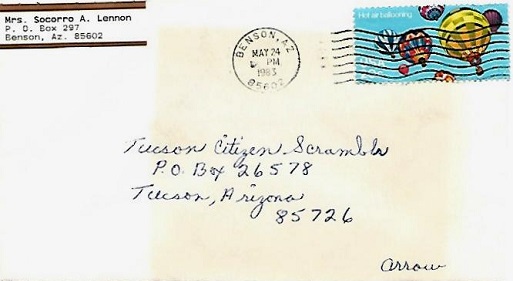 Mrs. Socorro A. Lennon
P. O. Box 297
Benson, Az. 85602
BENSON, AZ
MAY 24
PM
1983
85602
Hot air ballooning
Tucson Citizen Scrambler
P.O. Box 26578
Tucson, Arizona
85726
Arrow